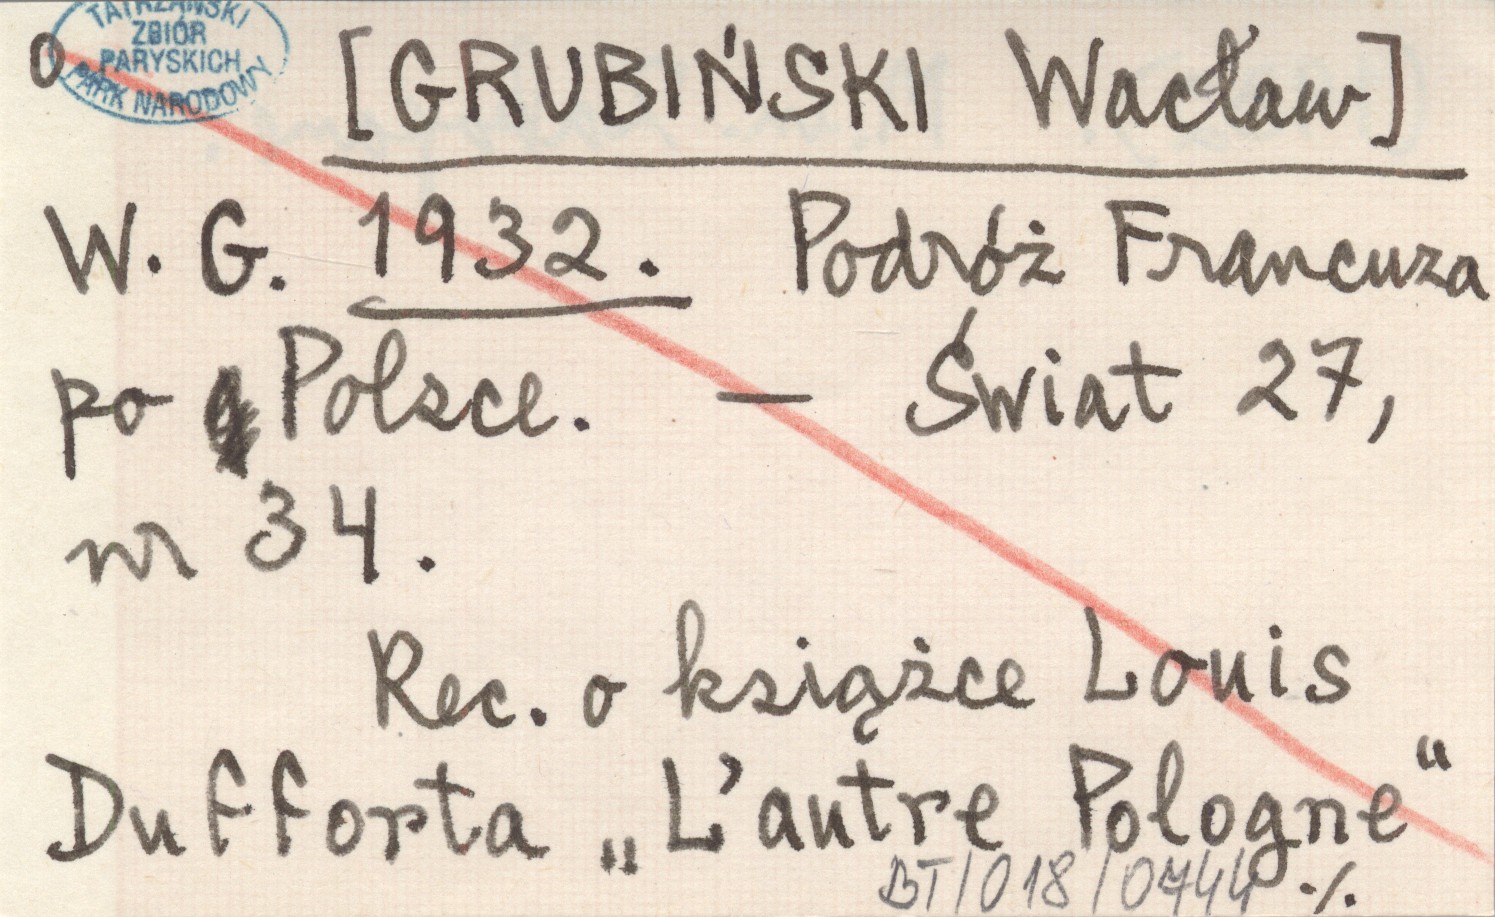 TATRZAŃSKI
ZBIÓR
PARYSKICH
PARK NARODOWY
o [GRUBIŃSKI Wacław]
W. G. 1932. Podróż Francuza
po Polsce. — Świat 27,
nr 34.
Rec. o książce Louis
Dufforta „L'autre Pologne“
BT/018/0744 ./.